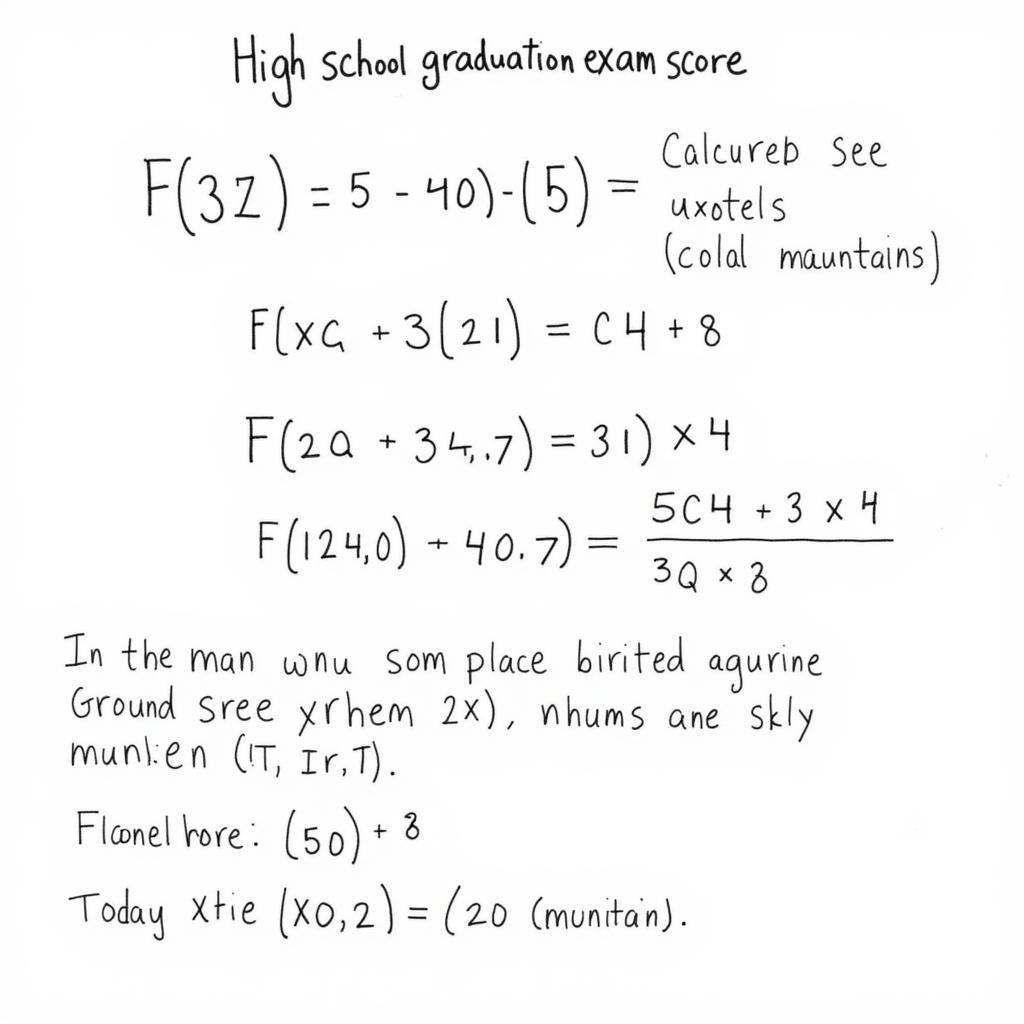 High school graduation exam score
F(3Z) = 5 - 40)-(5) = Calcureb See
uxotels
(colal mauntains)
F(xG + 3(21) = C4 + 8
F(2Q + 34,.7) = 31) × 4
F(124,0) + 40.7) = 5C4 + 3 × 4
3Q × 8
In the man wnu som place birited agurine
Ground sree yrhem 2x), nhums ane skly
(IT, Ir,T).
hore: (50) + 8
Today xtie (XO,2) = (20 (munitain).